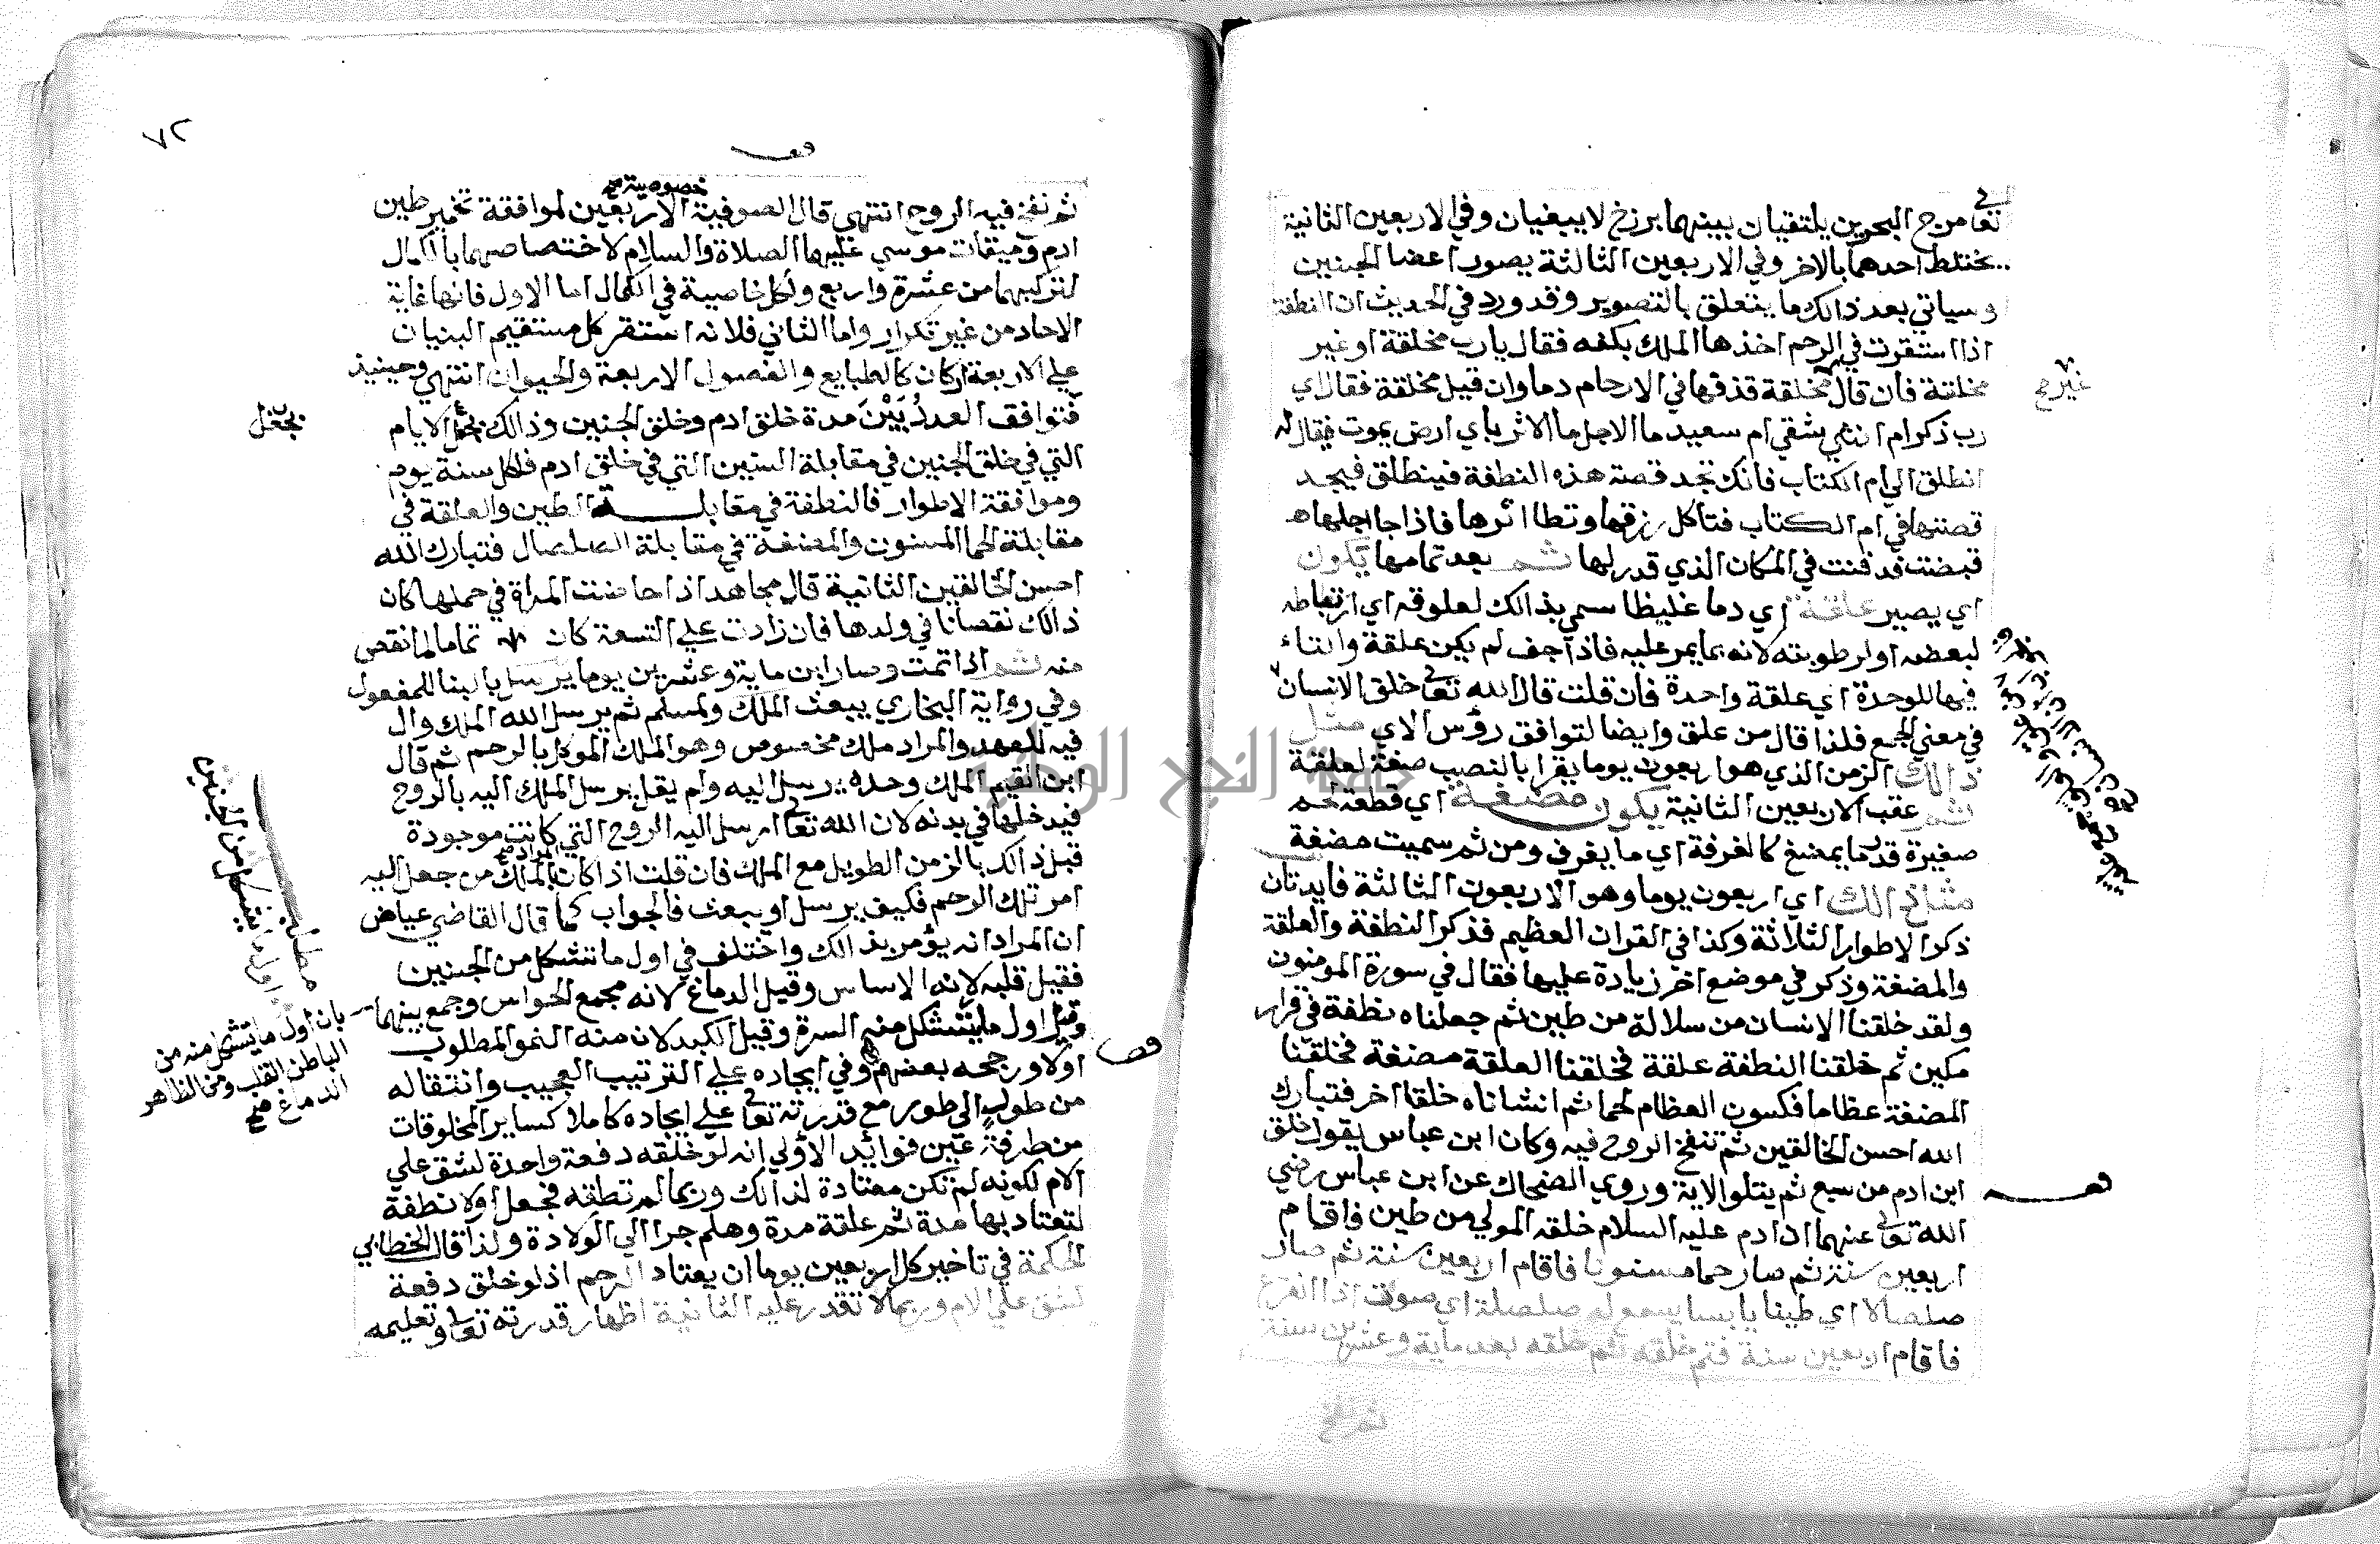 تعالى مرج البحرين يلتقيان بينهما برزخ لا يبغيان وفي الاربعين الثانية
يختلط احدهما بالاخر وفي الاربعين الثالثة يصور اعضا الجنين
وسياتي بعد ذالك ما يتعلق بالتصوير وقد ورد في الحديث ان النطفة
اذا استقرت في الرحم اخذها الملك بكفه فقال يارب مخلقة او غير
مخلقة فان قال مخلقة قذفها في الارحام دما وان قيل مخلقة فقال اي
غير صح
رب ذكر ام انثي شقي ام سعيد ما الاجل ما الاثر باي ارض يموت فيقال له
انطلق الي ام الكتاب فانك تجد قصة هذه النطفة فينطلق فيجد
قصتها في ام الكتاب فتاكل رزقها وتطا اثرها فاذا جا اجلها
قبضت فدفنت في المكان الذي قدر لها ثم بعد تمامها يكون
اي يصير علقة اي دما غليظا سمي بذالك لعلوقه اي ارتباطه
لبعضه او لرطوبته لانه بما يمر عليه فاذا جف لم يكن علقة والتاء
فيها للوحدة اي علقة واحدة فان قلت قال الله تعالى خلق الانسان
في معني الجمع فلذا قال من علق وايضا لتوافق رؤس الاي مثل
ذالك الزمن الذي هو اربعون يوما يقرا بالنصب صفة لعلقة
ثم عقب الاربعين الثانية يكون مضغة اي قطعة لحم
صغيرة قدر ما يمضغ كالغرفة اي ما يغرف ومن ثم سميت مضغة
مثل ذالك اي اربعون يوما وهو الاربعون الثالثة فايدتان
ذكر الاطوار الثلاثة وكذا في القران العظيم فذكر النطفة والعلقة
والمضغة وذكر في موضع اخر زيادة عليها فقال في سورة المومنون
ولقد خلقنا الانسان من سلالة من طين ثم جعلناه نطفة في قرار
مكين ثم خلقنا النطفة علقة فخلقنا العلقة مضغة فخلقنا
المضغة عظاما فكسون العظام لحما ثم انشاناه خلقا اخر فتبارك
الله احسن الخالقين ثم تنفخ الروح فيه وكان ابن عباس يقول خلق
ابن ادم من سبع ثم يتلوا الاية وروي الضحاك عن ابن عباس رضي
الله تعالى عنهما ان ادم عليه السلام خلقه المولي من طين فاقام
اربعين سنة ثم صار حما مسنونا فاقام اربعين سنة ثم صار
صلصالا اي طينا يابسا يسمع له صلصلة اي صوت اذا القرع
فاقام اربعين سنة فتم خلقه ثم خلقه بعد ماية وعشرين سنة
٧٢
ثم نفخ فيه الروح انتهي قال الصوفية الاربعين لموافقة تخمير طين
خصوصية صح
ادم وميقات موسي عليهما الصلاة والسلام لاختصاصهما بالكمال
لتركيبهما من عشرة واربع ولكل خاصية في الكمال اما الاول فانها غاية
الاحاد من غير تكرار واما الثاني فلانه استقر كل مستقيم البنيان
علي الاربعة اركان كالطبايع والفصول الاربعة والحيوان انتهي وحينيذ
فتوافق العدد بين مدة خلق ادم وخلق الجنين وذالك بجعل الايام
بجعل
التي في خلق الجنين في مقابلة السنين التي في خلق ادم فلكل سنة يوم
وموافقة الاطوار فالنطفة في مقابلة الطين والعلقة في
مقابلة الحما المسنون والمضغة في مقابلة الصلصال فتبارك الله
احسن الخالقين الثانية قال مجاهد اذا حاضت المراة في حملها كان
ذالك نقصانا في ولدها فان زادت علي التسعة كان تماما لما نقص
منه ثم اذا تمت وصار ابن ماية وعشرين يوما يرسل بالبنا للمفعول
وفي رواية البخاري يبعث الملك ولمسلم ثم يرسل الله الملك وال
فيه للعهد والمراد ملك مخصوص وهو الملك الموكل بالرحم ثم قال
ابن القيم الملك وحده يرسل اليه ولم يقل يرسل الملك اليه بالروح
فيدخلها في بدنه لان الله تعالى ارسل اليه الروح التي كانت موجودة
قبل ذالك بالزمن الطويل مع الملك فان قلت اذا كان الملك من جعل اليه
المراد صح
امر تلك الرحم فكيف يرسل او يبعث فالجواب كما قال القاضي عياض
ان المراد انه يؤمر بذالك واختلف في اول ما تتشكل من الجنين
مطلب اول ما يتشكل من الجنين
فقيل قلبه لانه الاساس وقيل الدماغ لانه مجمع الحواس وجمع بينهما
بان اول ما يتشكل منه من
الباطن القلب ومن الظاهر
الدماغ صح
وقيل اول ما يتشكل منه السرة وقيل الكبد لان منه النمو المطلوب
اولا ورجحه بعضهم وفي ايجاده علي الترتيب العجيب وانتقاله
من طور الي طور مع قدرته تعالى علي ايجاده كاملا كساير المخلوقات
من طرفة عين فوائد الاولي انه لو خلقه دفعة واحدة لشق علي
الام لكونه لم تكن معتادة لذالك وربما لم تطقه فجعل اولا نطفة
لتعتاد بها مدة ثم علقة مدة وهلم جرا الي الولادة ولذا قال الخطابي
الحكمة في تاخير كل اربعين يوما ان يعتاد الرحم اذ لو خلق دفعة
لشق علي الام وربما لا تقدر عليه الثانية اظهار قدرته تعالى وتعليمه